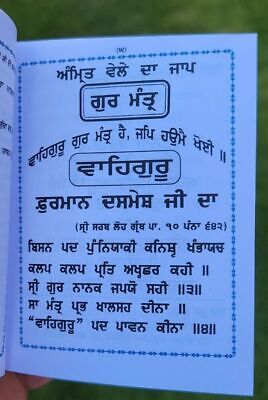 (੫)
ਅੰਮ੍ਰਿਤ ਵੇਲੇ ਦਾ ਜਾਪ
ਗੁਰ ਮੰਤ੍ਰ
ਵਾਹਿਗੁਰੂ ਗੁਰ ਮੰਤ੍ਰ ਹੈ, ਜਪਿ ਹਉਮੈ ਖੋਈ ॥
ਵਾਹਿਗੁਰੂ
ਫ਼ੁਰਮਾਨ ਦਸਮੇਸ਼ ਜੀ ਦਾ
(ਸ੍ਰੀ ਸਰਬ ਲੋਹ ਗ੍ਰੰਥ ਪਾ. ੧੦ ਪੰਨਾ ੬੪੨)
ਬਿਸਨ ਪਦ ਪੁੰਨਿਯਾਕੀ ਕਨਿਸ਼੍ਟ ਖੰਭਾਯਚ
ਕਲਪ ਕਲਪ ਪ੍ਰਤਿ ਅਖੁਛਰ ਕਹੀ ॥
ਸ੍ਰੀ ਗੁਰ ਨਾਨਕ ਜਪਯੋ ਸਹੀ ॥੩॥
ਸਾ ਮੰਤ੍ਰ ਪ੍ਰਭ ਖਾਲਸਹ ਦੀਨਾ ॥
“ਵਾਹਿਗੁਰੂ” ਪਦ ਪਾਵਨ ਕੀਨਾ ॥੪॥